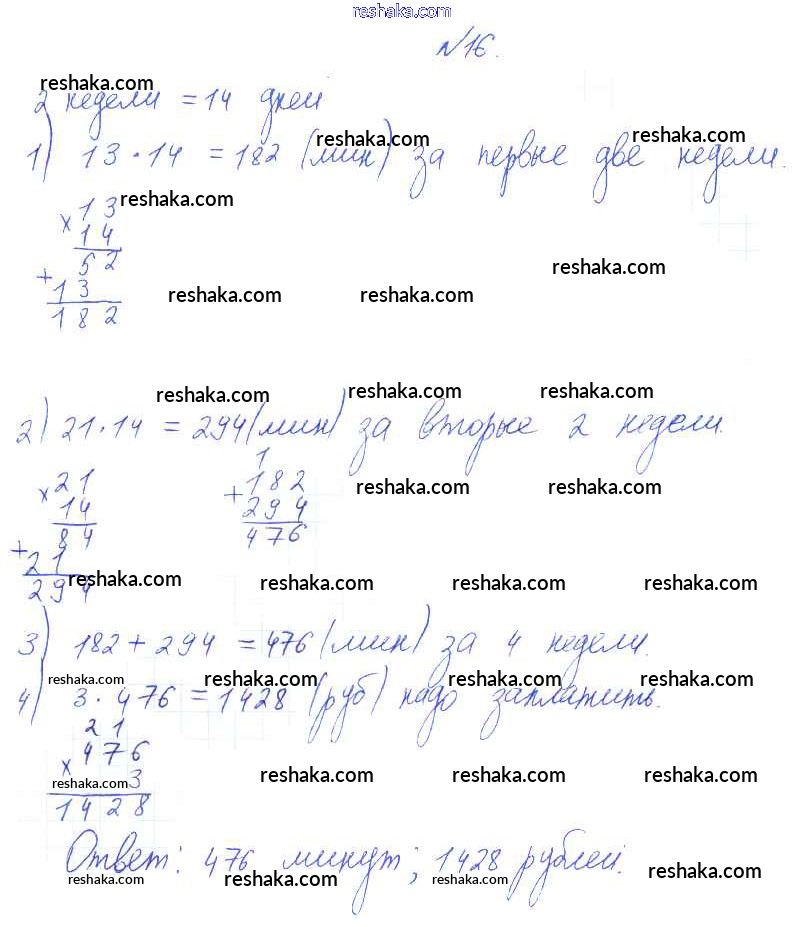 reshaka.com
№16.
reshaka.com
2 недели = 14 дней
1) 13·14 = 182 (мин) за первые две недели.
reshaka.com reshaka.com
×13 reshaka.com
14
52
+13
182
reshaka.com reshaka.com reshaka.com
reshaka.com reshaka.com reshaka.com
2) 21·14 = 294 (мин) за вторые 2 недели.
×21
14
84
+21
294
1
+182
294
476
reshaka.com reshaka.com
reshaka.com reshaka.com reshaka.com reshaka.com
3) 182 + 294 = 476 (мин) за 4 недели.
reshaka.com reshaka.com reshaka.com reshaka.com
4) 3·476 = 1428 (руб) надо заплатить.
21
×476
3
1428
reshaka.com reshaka.com reshaka.com reshaka.com
Ответ: 476 минут; 1428 рублей.
reshaka.com reshaka.com reshaka.com reshaka.com